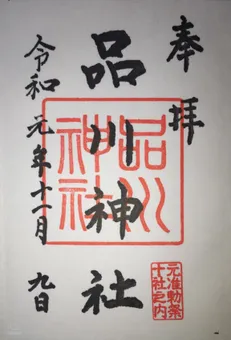 奉拝
品川神社
令和元年十一月九日
品川神社
元准勅祭
十社之内